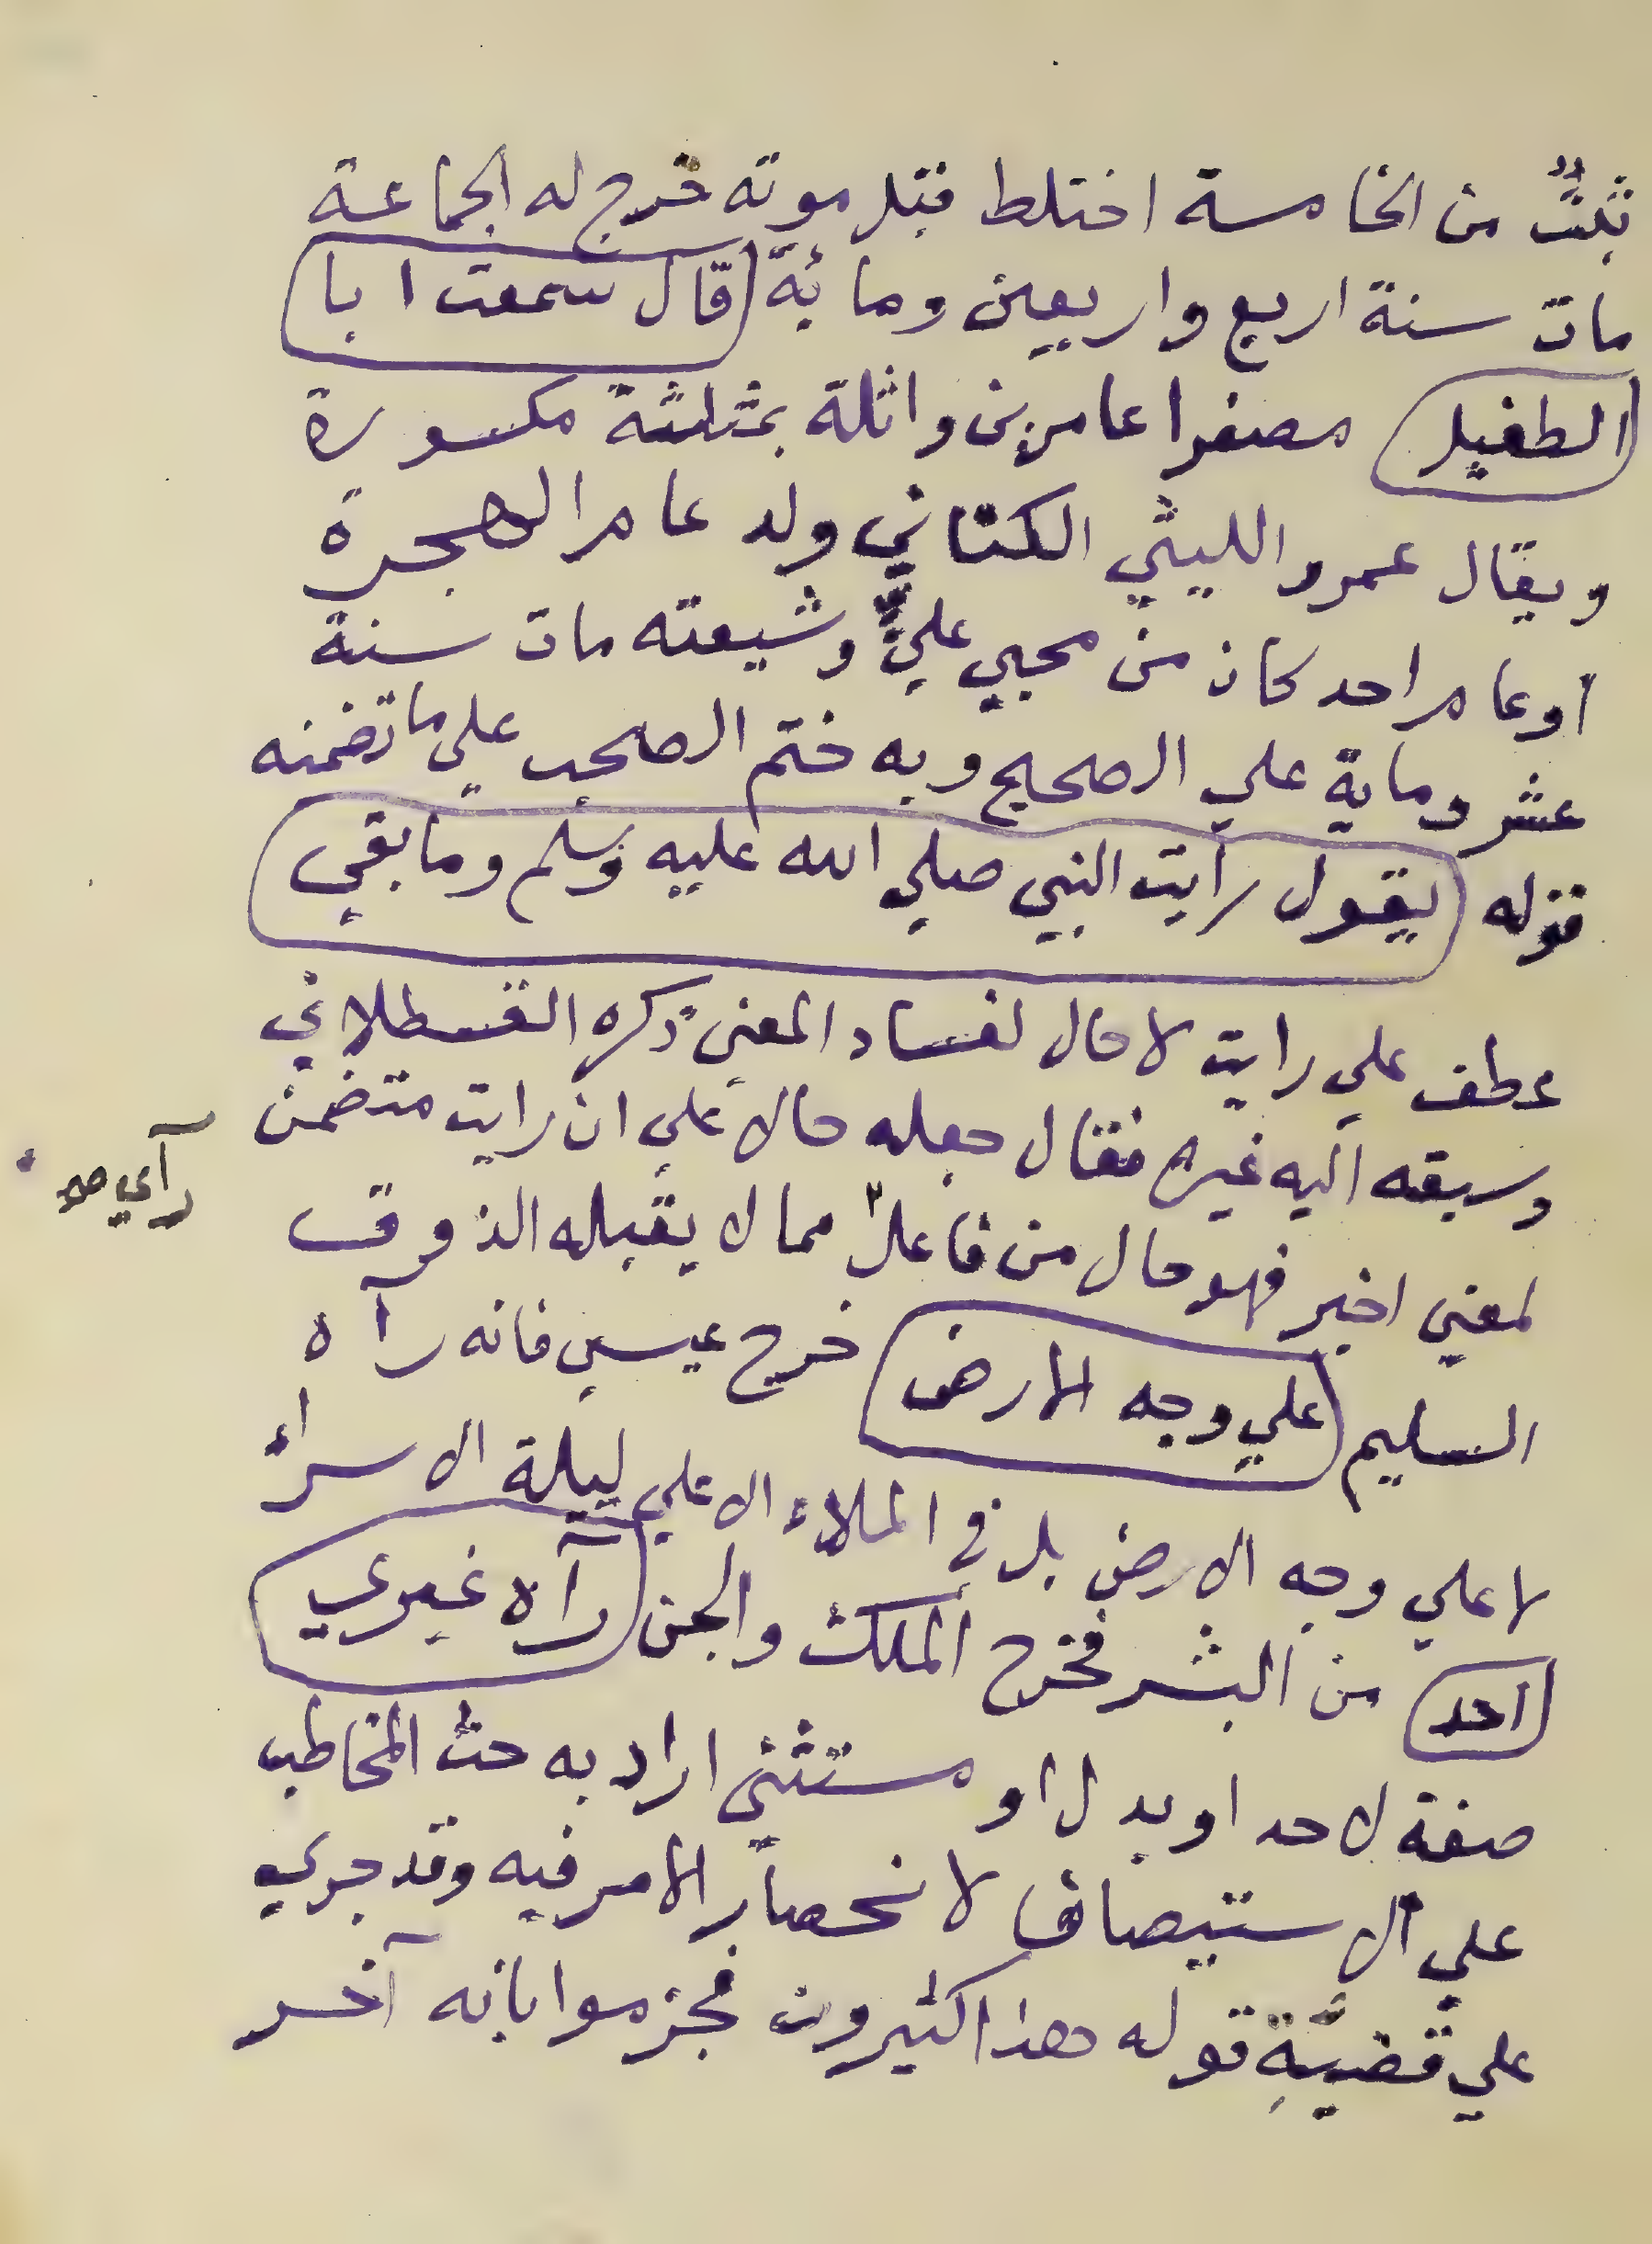 ثبتٌ من الخامسة اختلط قبل موته خرج له الجماعة
مات سنة اربع واربعين ومائة قال سمعت ابا
الطفيل مصغرا عامر بن واثلة بمثلثة مكسورة
ويقال عمرو الليثي الكناني ولد عام الهجرة
او عام احد كان من محبي علي وشيعته مات سنة
عشر وماية علي الصحيح وبه ختم الصحب علي ما تضمنه
قوله يقول رايت النبي صلي الله عليه وسلم وما بقي
عطف علي رايت لا حال لفساد المعني ذكره القسطلاني
وسبقه اليه غيره فقال جعله حالا علي ان رايت متضمن
لمعني اخبر فهو حال من فاعل مما لا يقبله الذوق
رآي صو
السليم علي وجه الارض خرج عيسي فانه رآه
لا علي وجه الارض بل في الملاء الاعلي ليلة الاسراء
احد من البشر فخرج الملك والجن رآه غيري
صفة لاحد او بدل او مستثني اراد به حث المخاطب
علي الاستيصاف لانحصار الامر فيه وقد جري
علي قضية قوله هذا كثيرون فجزموا بانه آخر